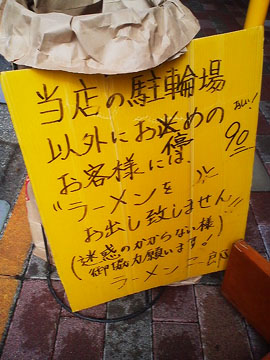 当店の駐輪場
以外にお迷めの
停
おしい!
90
お客様には、
"ラーメンを
お出し致しません!!"
(迷惑のかからない様
御協力願います!)
ラーメン二郎